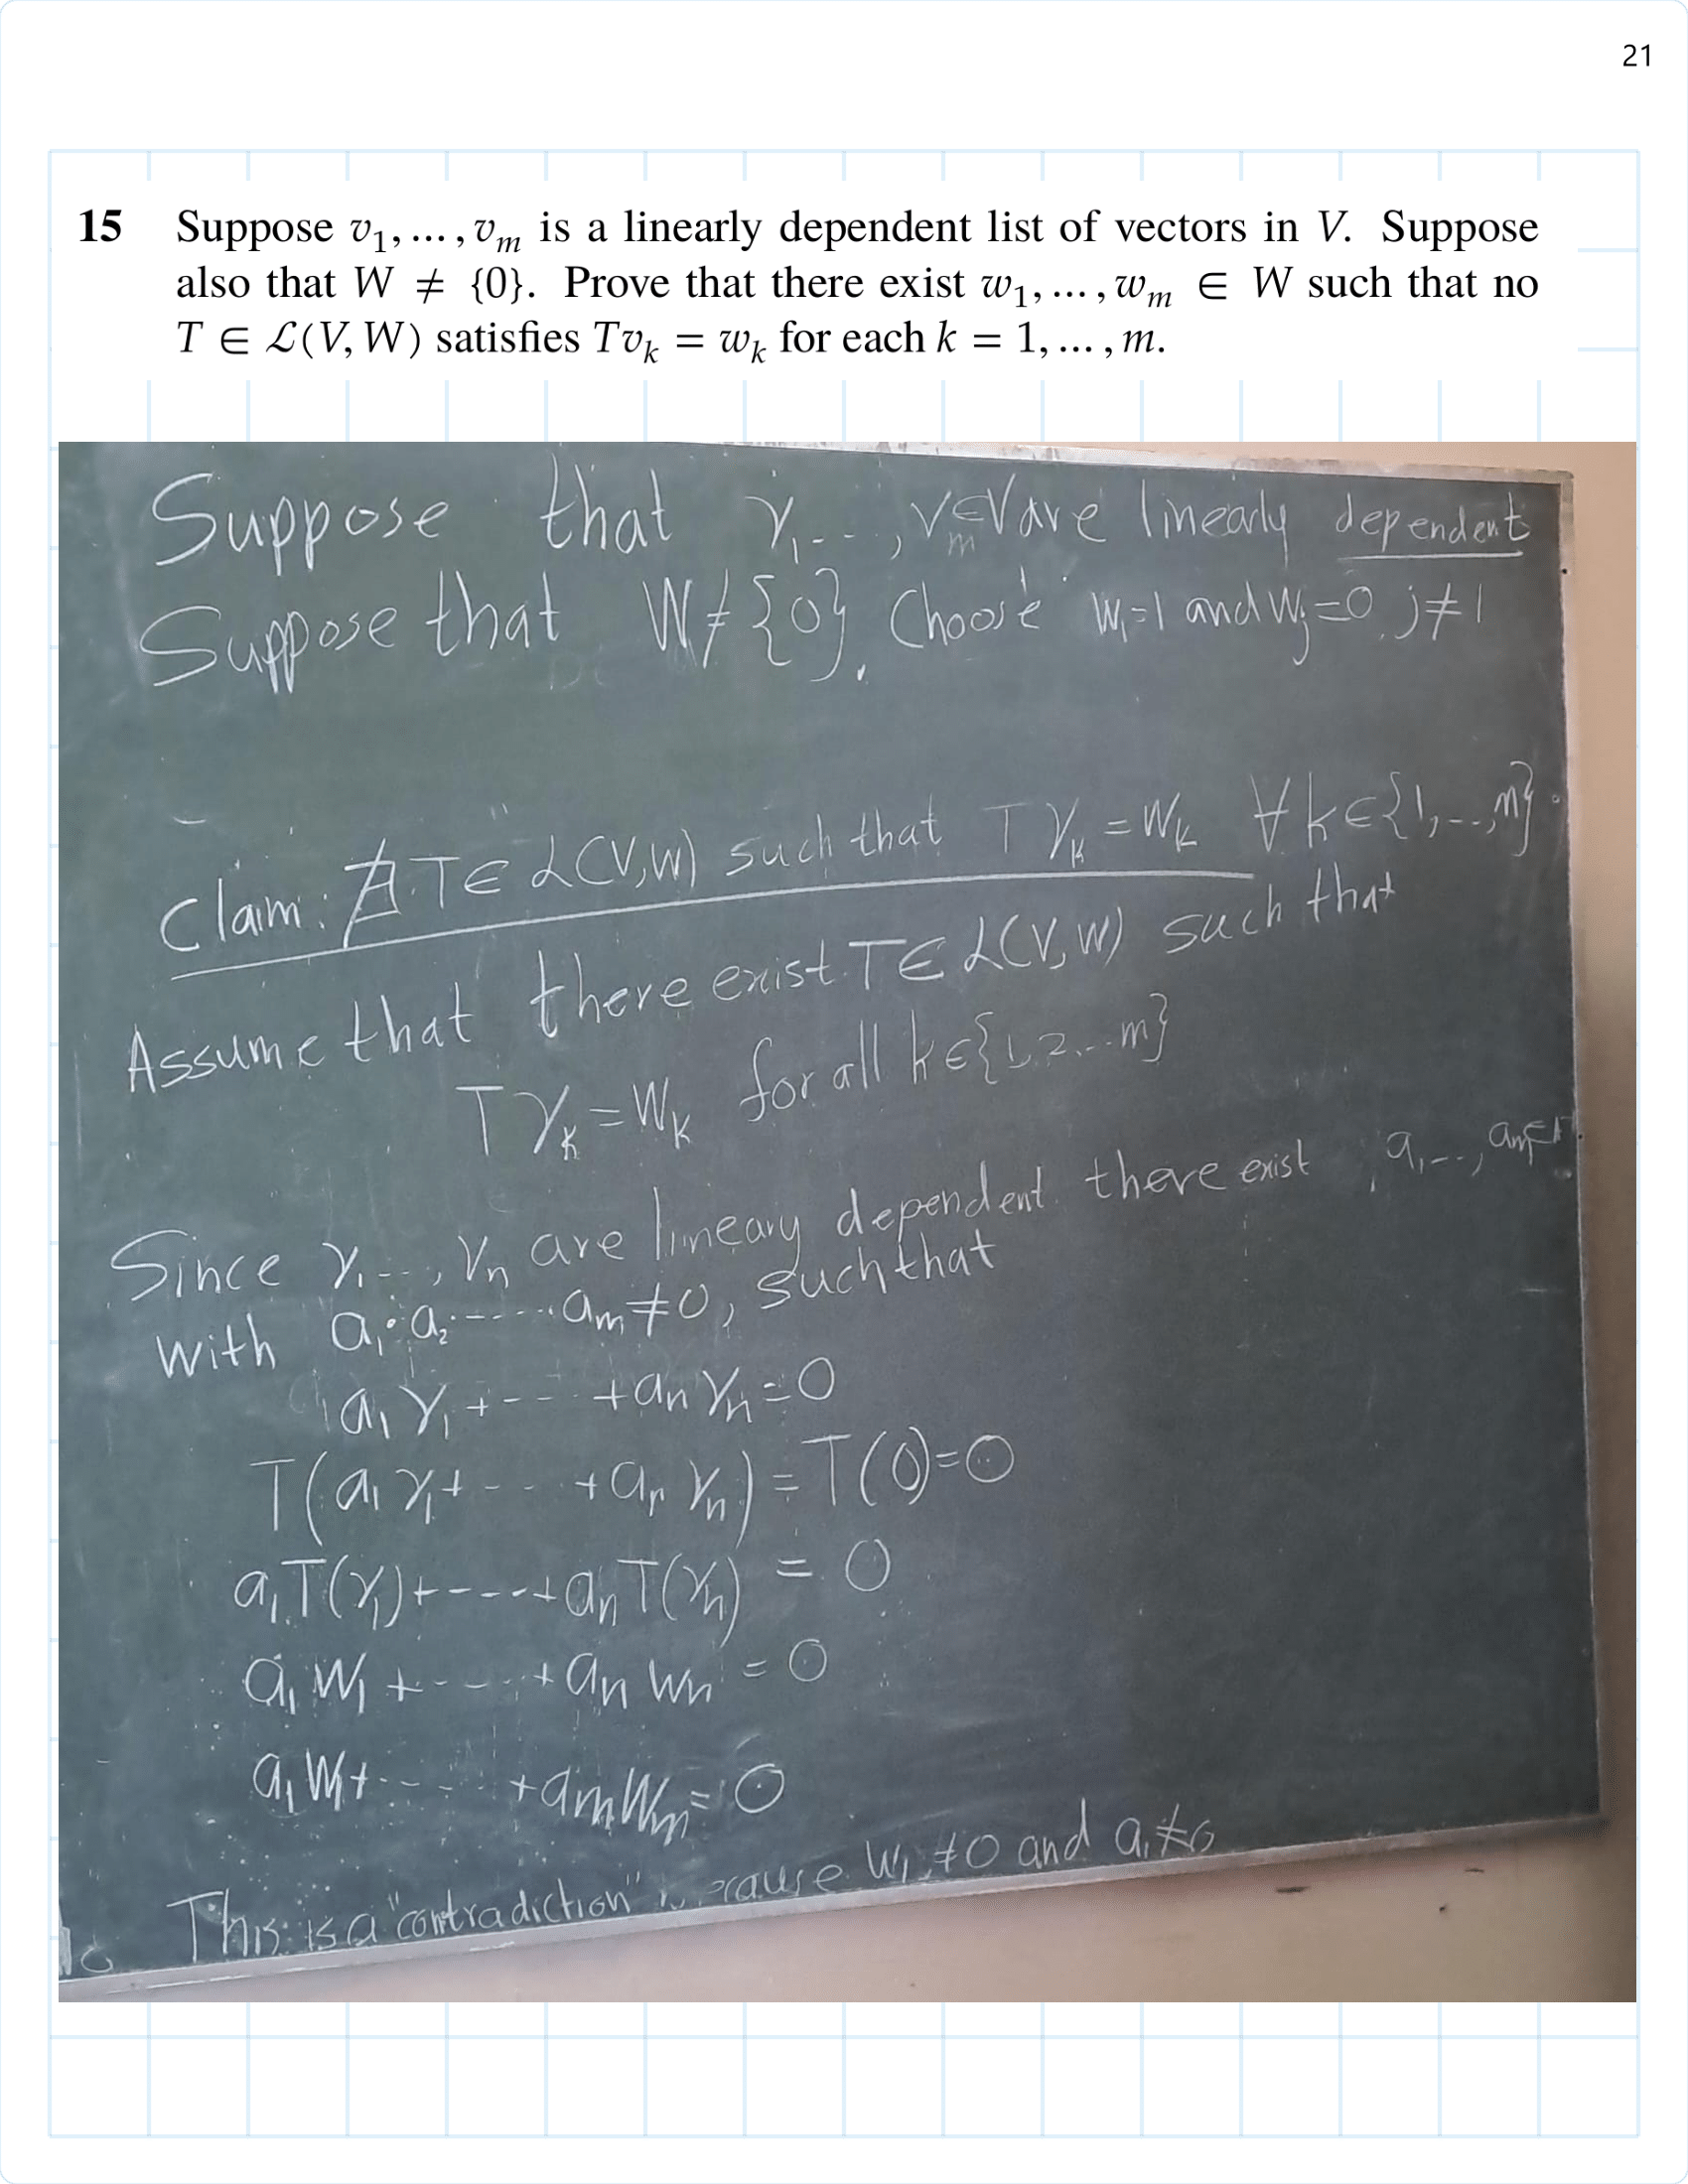 21
15 Suppose v₁, … , vₘ is a linearly dependent list of vectors in V. Suppose
also that W ≠ {0}. Prove that there exist w₁, … , wₘ ∈ W such that no
T ∈ ℒ(V, W) satisfies Tvₖ = wₖ for each k = 1, … , m.
Suppose that v₁, - - -, vₘ∈V are linearly dependent
Suppose that W≠{0}. Choose w₁=1 and wⱼ=0, j≠1
Claim: ∄ T∈ ℒ(V,W) such that Tvₖ=Wₖ ∀ k∈{1,--,n}
Assume that there exist T∈ ℒ(V,W) such that
Tvₖ=Wₖ for all k∈{1,2...m}
Since v₁---, vₙ are lineary dependent there exist a₁--, aₘ∈
with a₁·a₂----- aₘ≠0, such that
a₁v₁+--- +aₙvₙ=0
T(a₁v₁+- - - +aₙ vₙ)=T(0)=0
a₁T(v₁)+----+aₙT(vₙ) = 0
a₁W₁+- - - -+aₙ wₙ = 0
a₁W₁+- - - - +aₘWₘ= 0
This is a "contradiction" W₁≠0 and a₁≠0